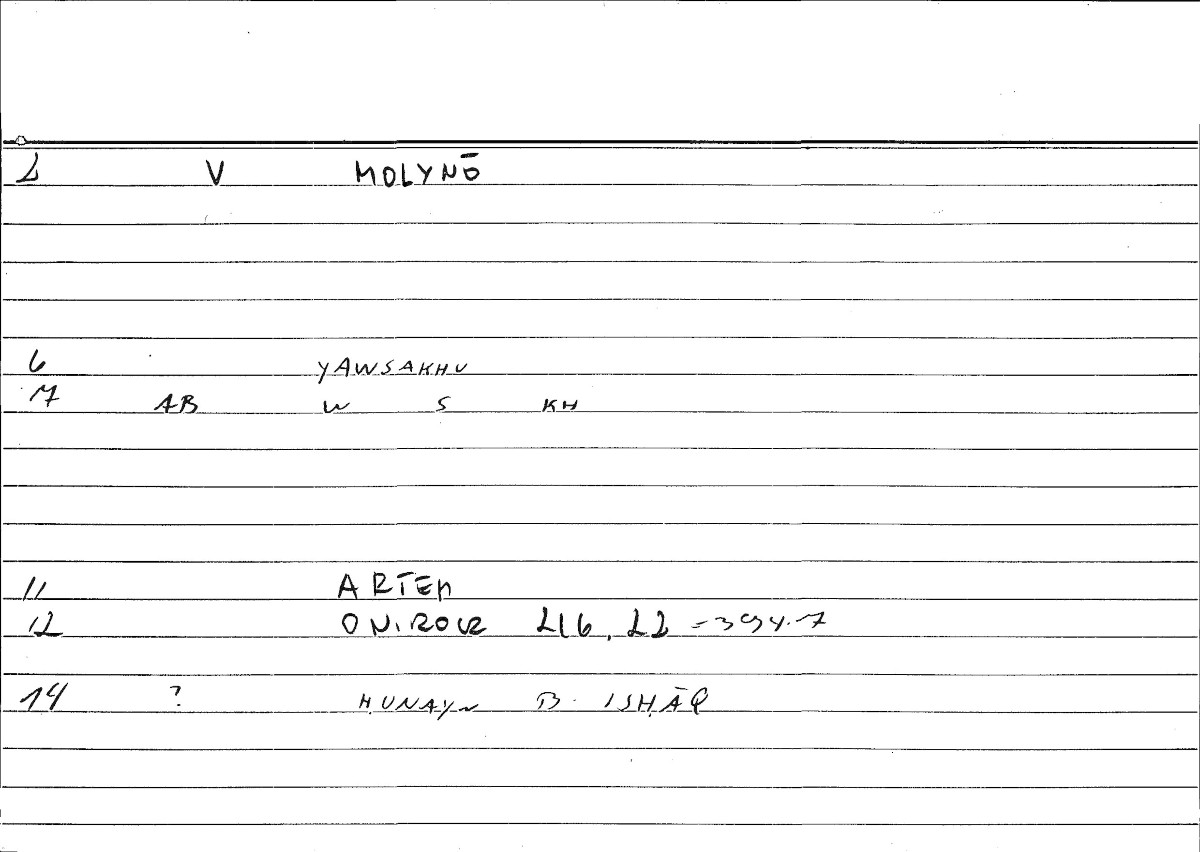 2 V MOLYNŌ
6 YAWSAKHU
7 AB W S KH
11 ARTEM
12 ONIROCR 216, 22 = 394.7
14 ? ḤUNAYN B. ISḤĀQ